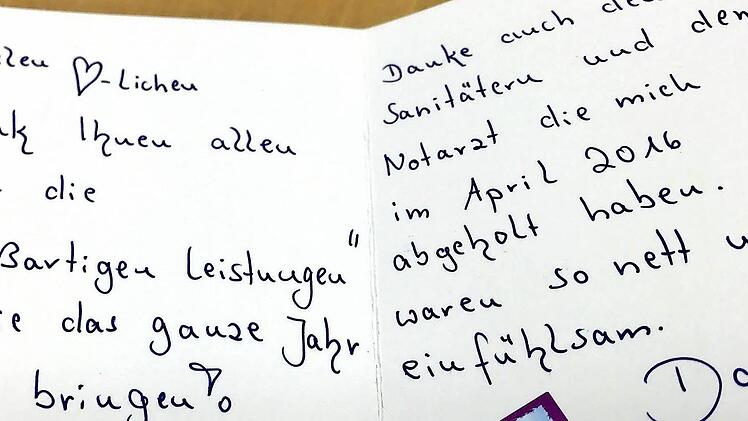 ♡-Lichen
Ihnen allen
die
Leistungen"
das ganze Jahr
bringen!
Danke auch
Sanitätern und dem
Notarzt die mich
im April 2016
abgeholt haben.
waren so nett
einfühlsam.